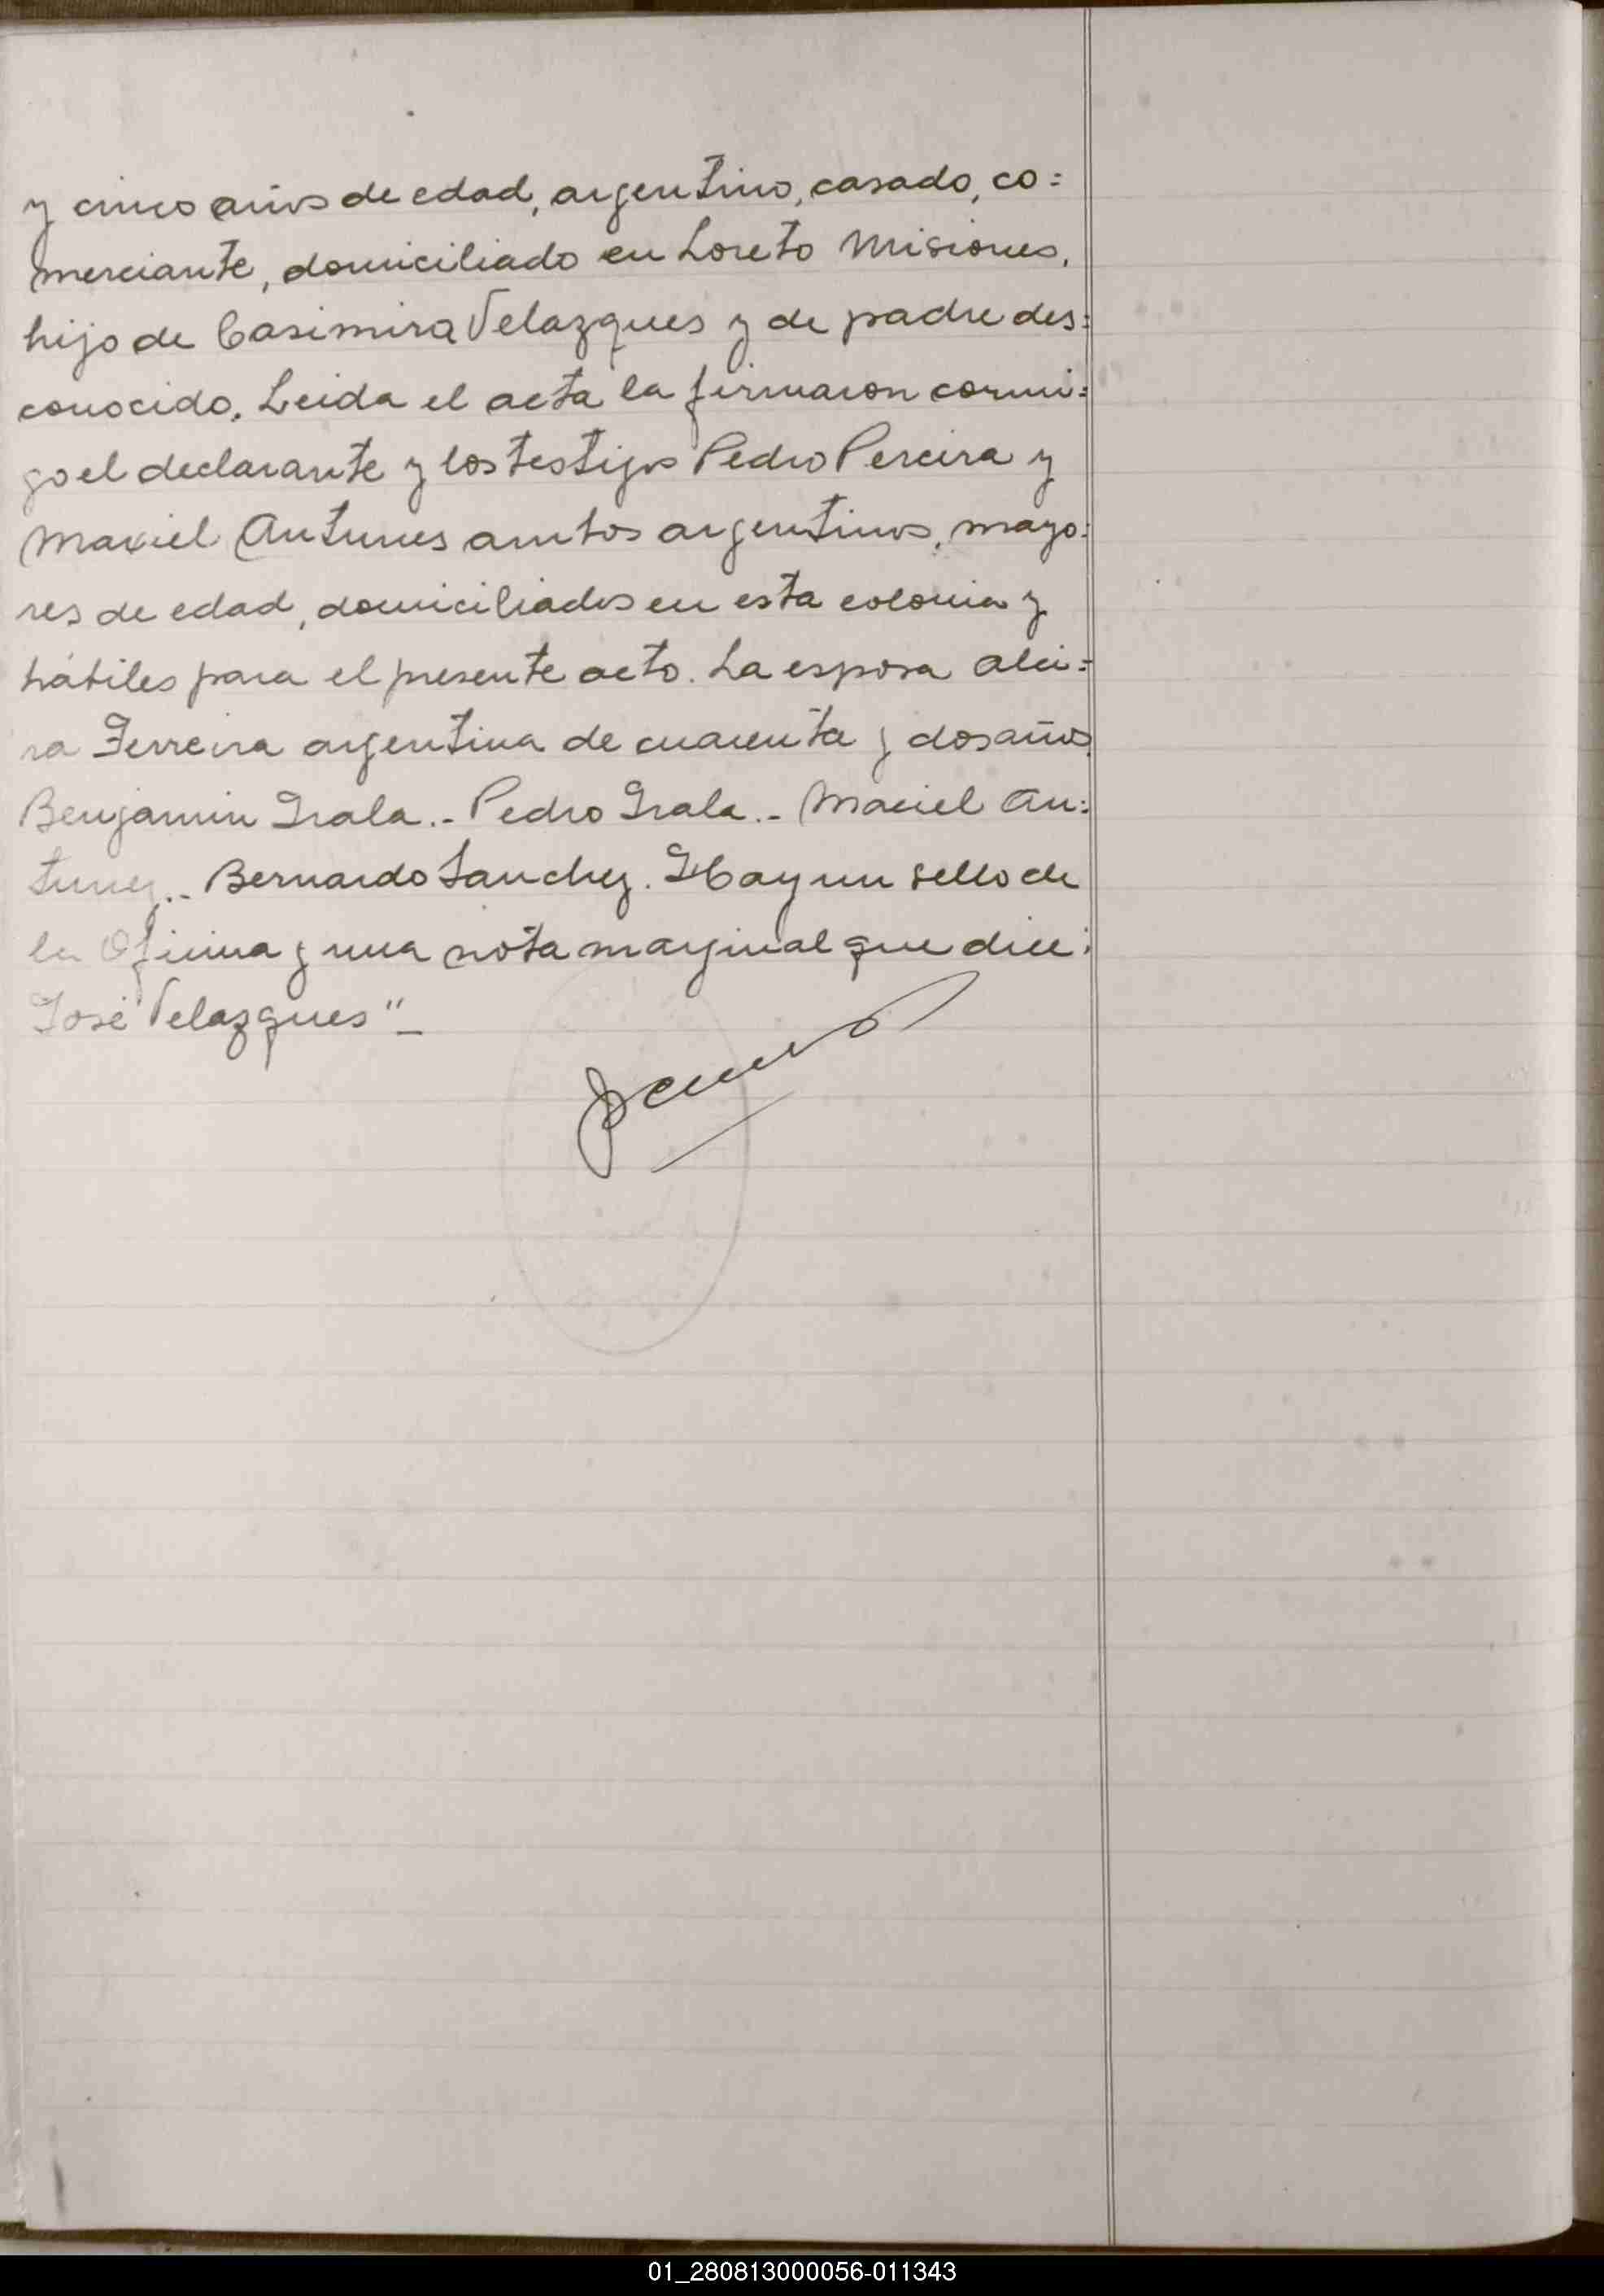 y cinco años de edad, argentino, casado, co=
merciante, domiciliado en Loreto Misiones,
hijo de Casimira Velazques y de padre des=
conocido. Leida el acta la firmaron conmi=
go el declarante y los testigos Pedro Pereira y
Maciel Antunes ambos argentinos, mayo=
res de edad, domiciliados en esta colonia y
hábiles para el presente acto. La esposa Alci=
ra Ferreira argentina de cuarenta y dos años
Benjamin Irala.- Pedro Irala.- Maciel An=
tunez.- Bernardo Sanchez. Hay un sello de
la Oficina y una nota marginal que dice:
José Velazques"_
01_280813000056-011343